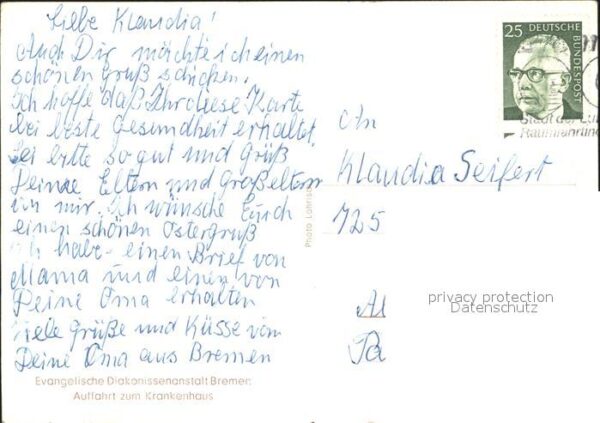 Liebe Klaudia!
Auch Dir möchte ich einen
schönen Gruß schicken.
Ich hoffe daß Ihr diese Karte
bei beste Gesundheit erhaltet.
Sei bitte so gut und Grüß
Deine Eltern und Großeltern
von mir. Ich wünsche Euch
einen schönen Ostergruß
Ich habe einen Brief von
Mama und einen von
Deine Oma erhalten
viele Grüße und Küsse von
Deine Oma aus Bremen
Evangelische Diakonissenanstalt Bremen
Auffahrt zum Krankenhaus
Photo
25 DEUTSCHE
BUNDESPOST
Stadt der Lu
Raumfahrtind
An
Klaudia Seifert
725
privacy protection
Datenschutz